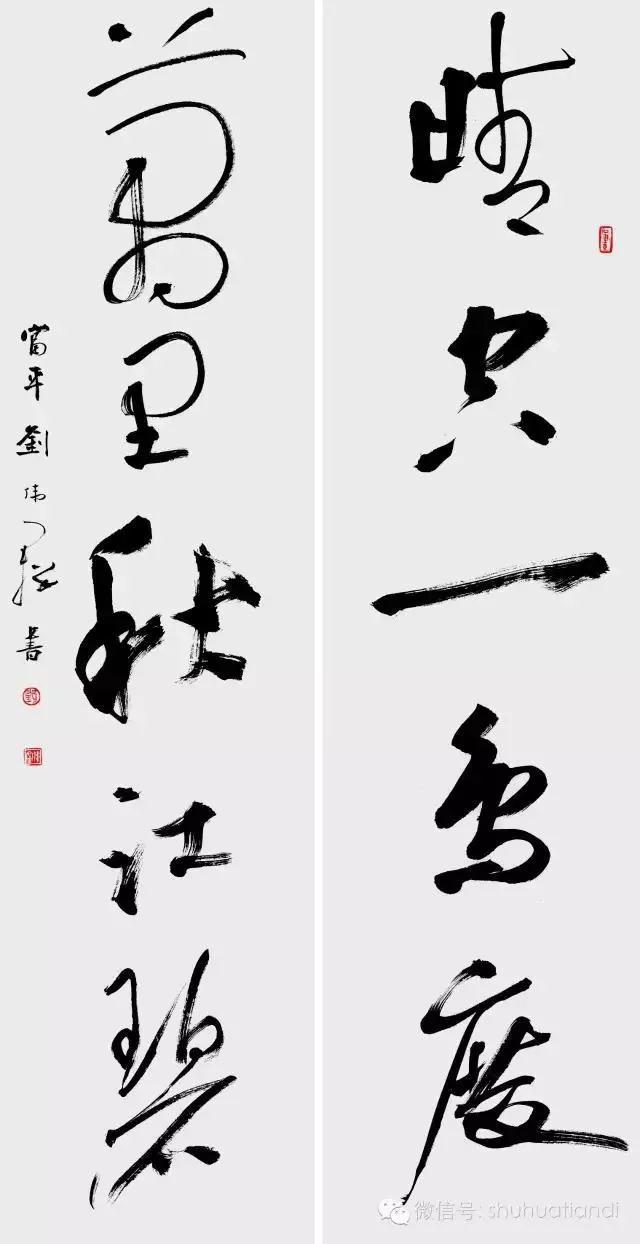 晴空一鸟度
萬里秋江碧
富平劉伟書
微信号: shuhuatiandi